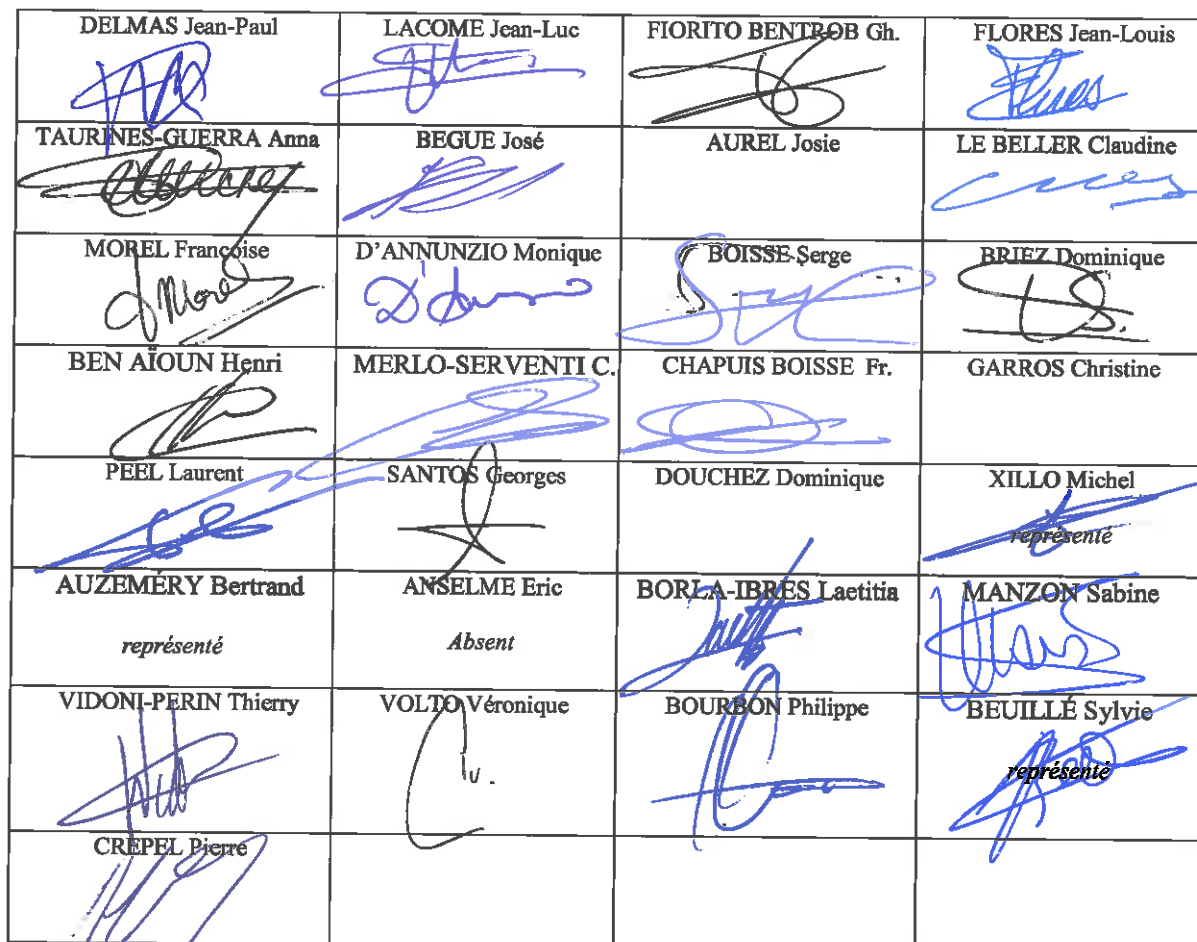 DELMAS Jean-Paul
LACOME Jean-Luc
FIORITO BENTROB Gh.
FLORES Jean-Louis
TAURINES-GUERRA Anna
BEGUE José
AUREL Josie
LE BELLER Claudine
MOREL Françoise
D'ANNUNZIO Monique
BOISSE Serge
BRIEZ Dominique
BEN AÏOUN Henri
MERLO-SERVENTI C.
CHAPUIS BOISSE Fr.
GARROS Christine
PEEL Laurent
SANTOS Georges
DOUCHEZ Dominique
XILLO Michel
représenté
AUZEMÉRY Bertrand
représenté
ANSELME Eric
Absent
BORLA-IBRES Laetitia
MANZON Sabine
VIDONI-PERIN Thierry
VOLTO Véronique
BOURBON Philippe
BEUILLÉ Sylvie
représenté
CREPEL Pierre